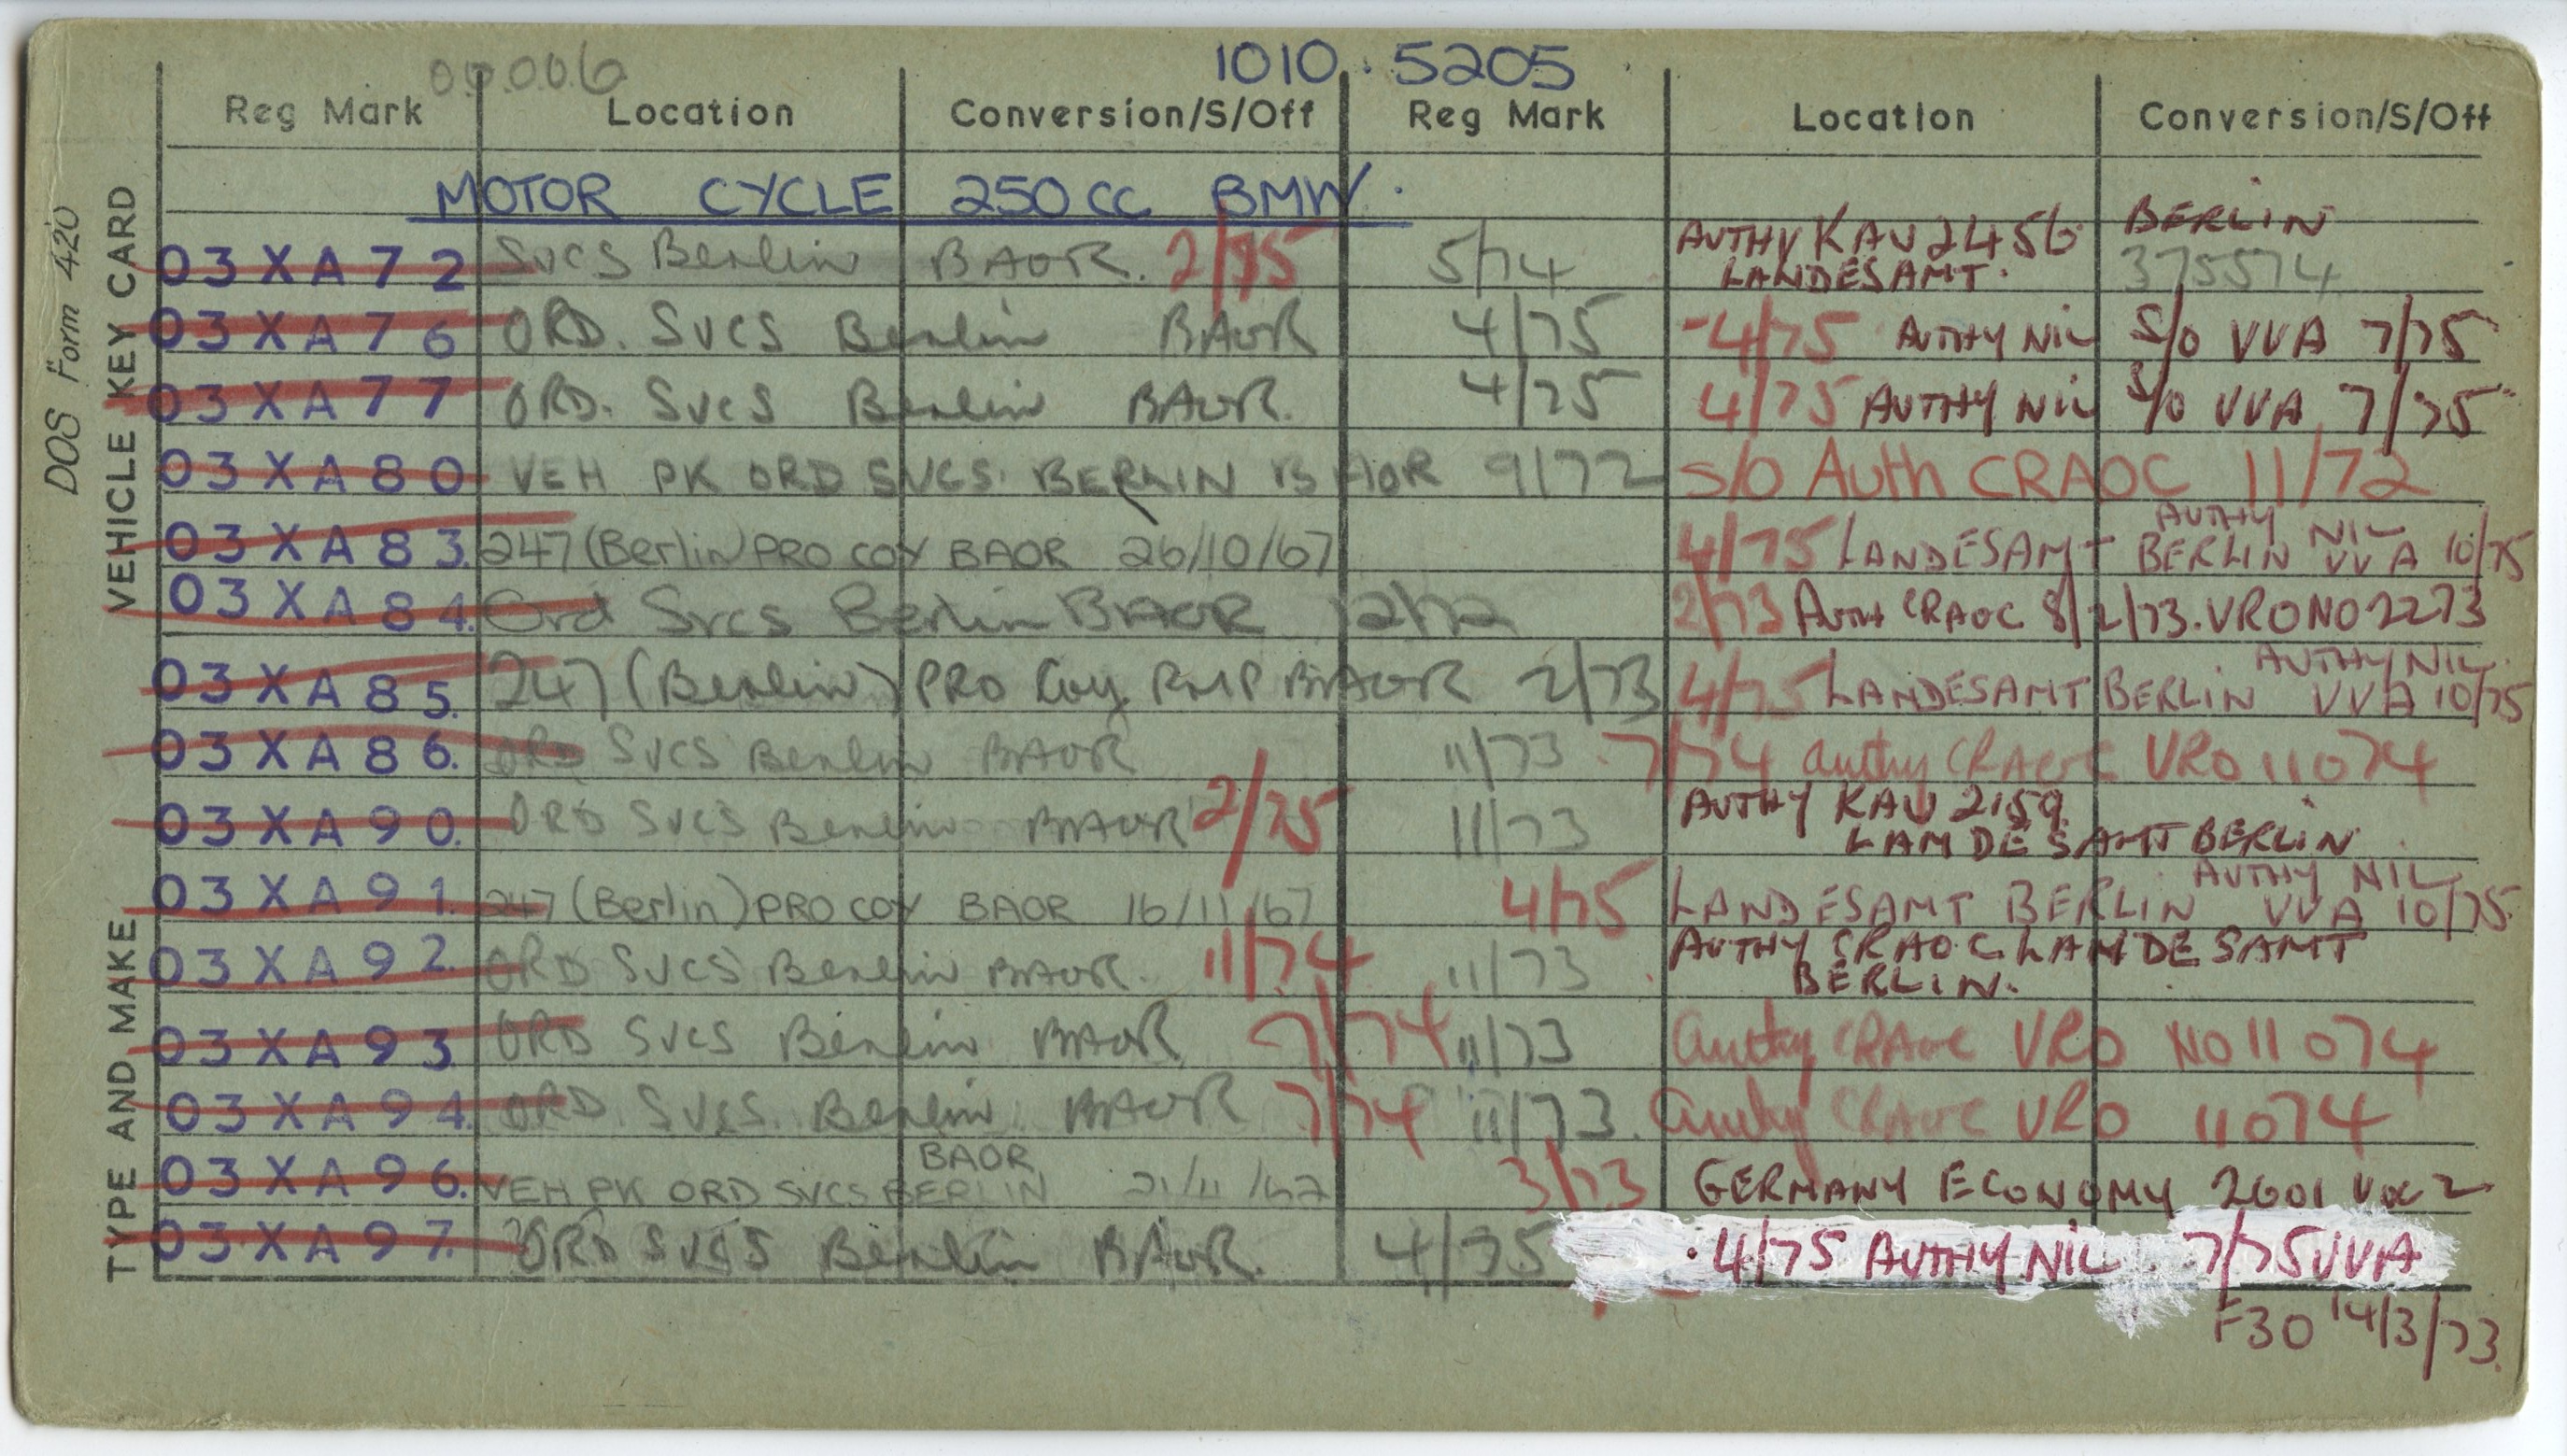 00.006 1010 . 5205
Reg Mark Location Conversion/S/Off Reg Mark Location Conversion/S/Off
DOS Form 420
VEHICLE KEY CARD
TYPE AND MAKE
MOTOR CYCLE 250CC BMW.
03XA72 SVCS Berlin BAOR. 2/75 5/74 AUTHY KAU 2456 BERLIN
LANDESAMT. 375574
03XA76 ORD. SVCS Berlin BAOR 4/75 4/75 AUTHY NIL S/O VVA 7/75
03XA77 ORD. SVCS Berlin BAOR. 4/75 4/75 AUTHY NIL S/O VVA 7/75
03XA80 VEH PK ORD SVCS. BERLIN BAOR 9/72 S/O Auth CRAOC 11/72
03XA83. 247 (Berlin) PRO COY BAOR 26/10/67 4/75 LANDESAMT BERLIN AUTHY NIL VVA 10/75
03XA84. Ord Svcs Berlin BAOR 12/72 2/73 Auth CRAOC 8/2/73. VRO NO 2273
03XA85. 247 (Berlin) PRO Coy RMP BAOR 2/73 4/75 LANDESAMT BERLIN AUTHY NIL. VVA 10/75
03XA86. ORD SVCS Berlin BAOR 11/73 7/74 authy CRAOC VRO 11074
03XA90. ORD SVCS Berlin BAOR 2/75 11/73 AUTHY KAU 2159
LAMDESAMT BERLIN
03XA91. 247 (Berlin) PRO COY BAOR 16/11/67 4/75 LANDESAMT BERLIN AUTHY NIL VVA 10/75.
03XA92. ORD SVCS Berlin BAOR. 11/74 11/73 AUTHY CRAOC LAMDESAMT
BERLIN.
03XA93 ORD SVCS Berlin BAOR 7/74 11/73 authy CRAOC VRO NO 11074
03XA94. ORD SVCS. Berlin BAOR 7/74 11/73. authy CRAOC VRO 11074
03XA96. VEH PK ORD SVCS BERLIN BAOR 21/11/67 3/73 GERMANY ECONOMY 2601
03XA97. ORD SVCS Berlin BAOR. 4/75 4/75 AUTHY NIL. 7/75 VVA
F30 14/3/73.